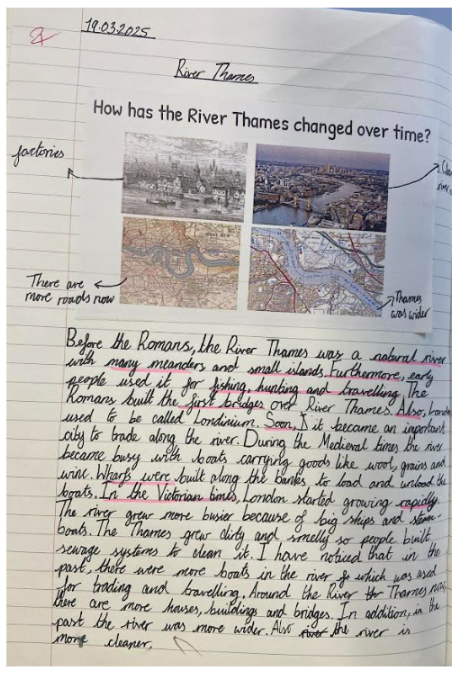 19.03.2025
River Thames
How has the River Thames changed over time?
factories
There are
more roads now
Thames
was wider
Before the Romans, the River Thames was a natural river
with many meanders and small islands. Furthermore, early
people used it for fishing, hunting and travelling. The
Romans built the first bridges over River Thames. Also, London
used to be called Londinium. Soon, it became an important
city to trade along the river. During the Medieval times the river
became busy with boats carrying goods like wool, grains and
wine. Wharfs were built along the banks to load and unload the
boats. In the Victorian times, London started growing rapidly.
The river grew more busier because of big ships and steam-
boats. The Thames grew dirty and smelly so people built
sewage systems to clean it. I have noticed that in the
past, there were more boats in the river which was used
for trading and travelling. Around the River Thames now,
there are more houses, buildings and bridges. In addition, in the
past the river was more wider. Also the river is
more cleaner.